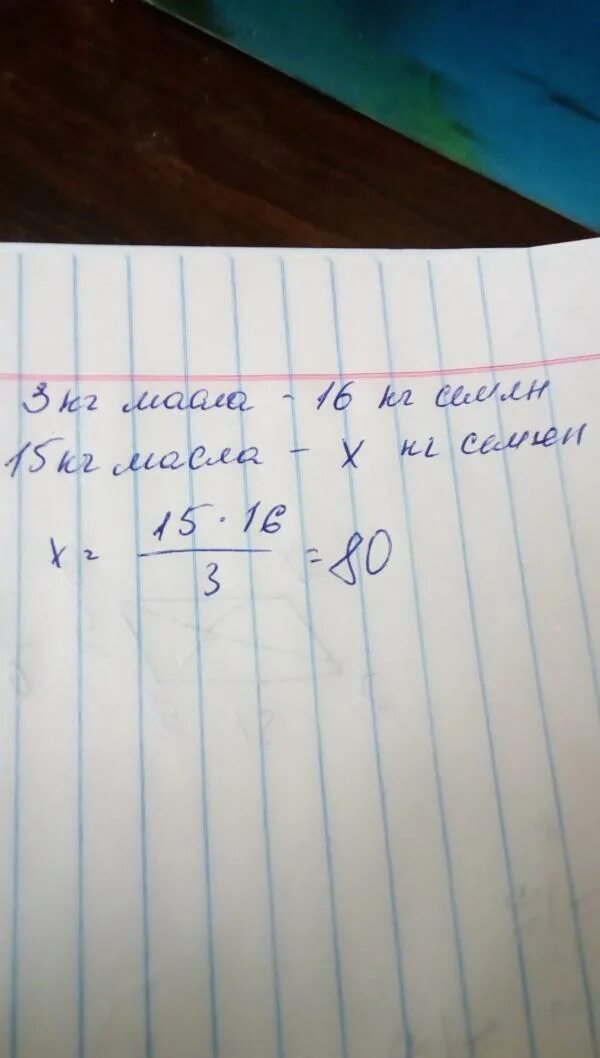 3 кг масла - 16 кг семян
15 кг масла - х кг семян
х = 15 · 16 / 3 = 80